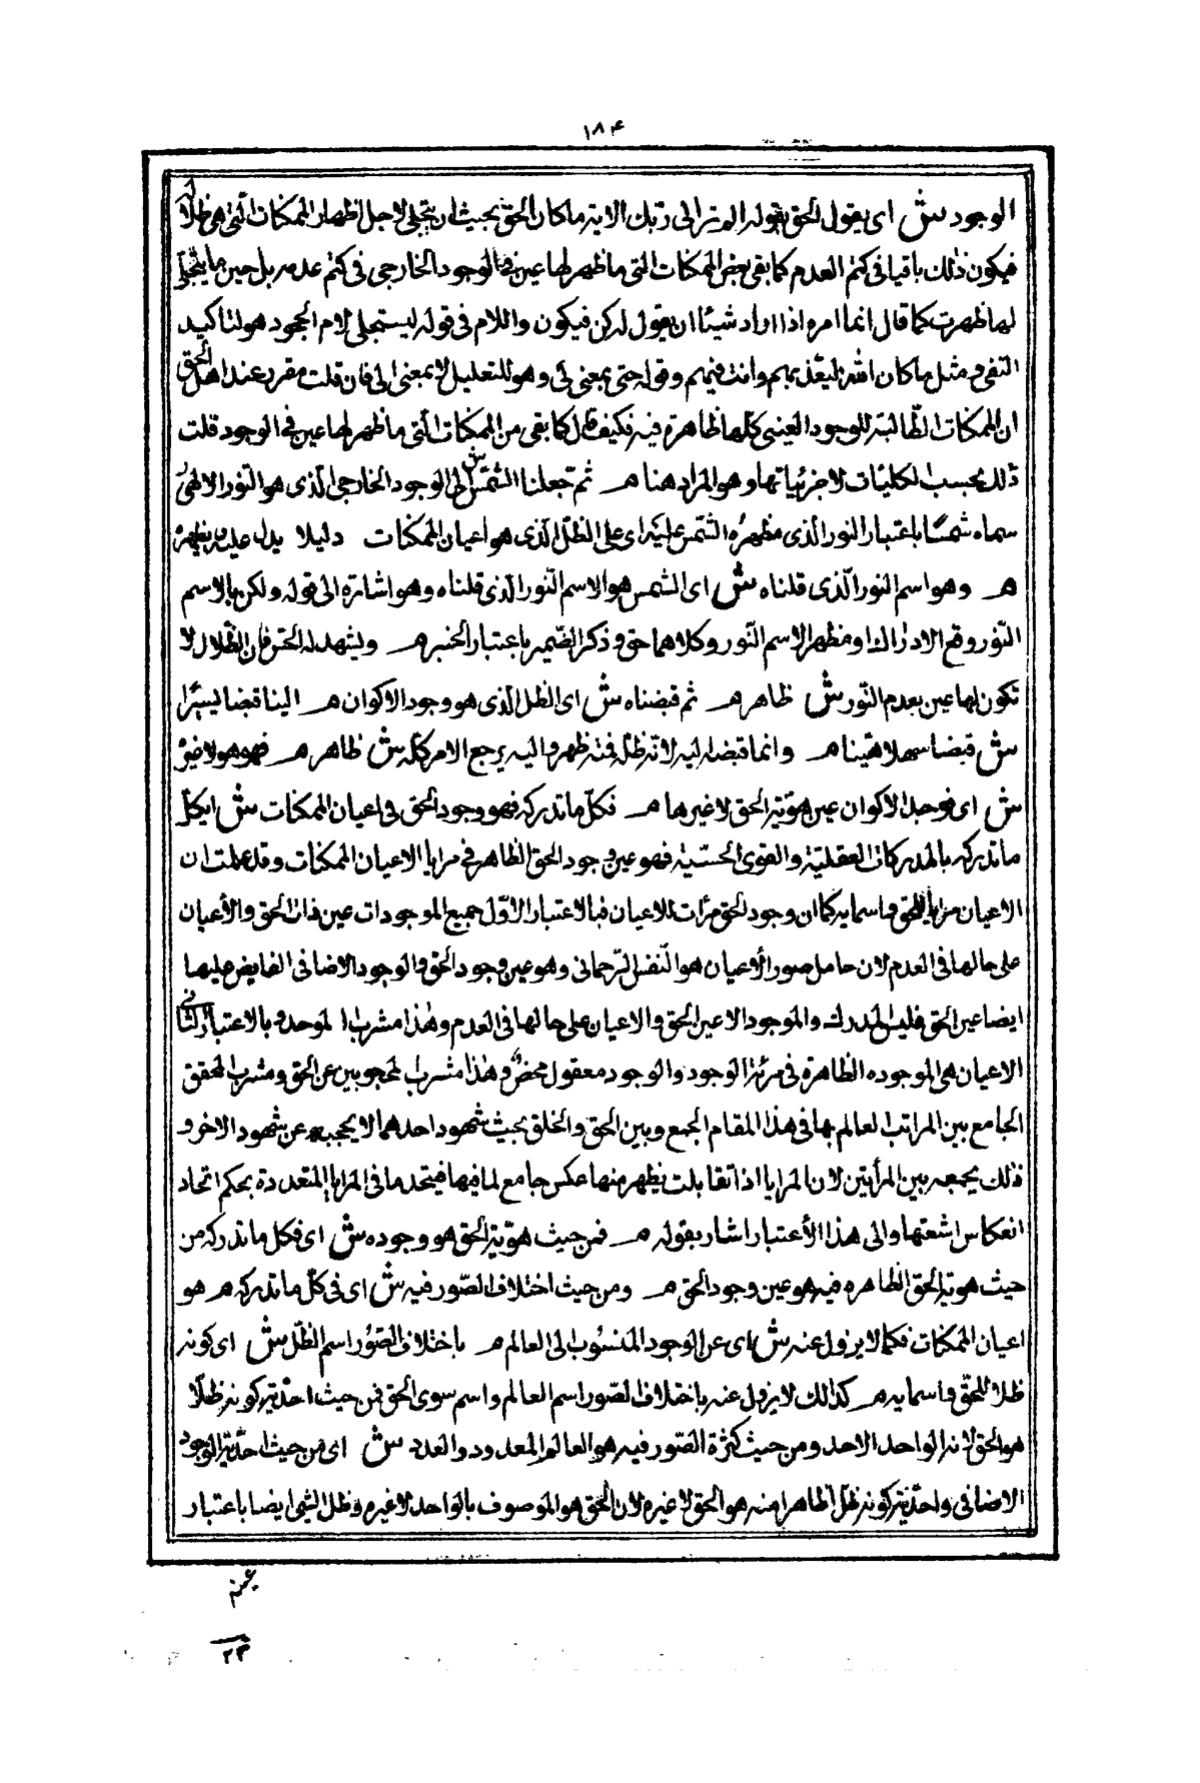 ۱۸۴
الوجود ش ای يقول الحق بقوله الم تر الى ربك الاية ما كان الحق بحيث ان يتجلى لاجل اظهار الممكنات التى هى ظلاله
فيكون ذلك باقيا فى كتم العدم كما بقى بعض الممكنات التى ما ظهر لها عين فى الوجود الخارجى فى كتم عدمه بل حين ما يتجلى
لها ظهرت كما قال انما امره اذا اراد شيئا ان يقول له كن فيكون واللام فى قوله ليستجلى لام الجحود هو لتاكيد
النفى ومثل ما كان الله ليعذبهم وانت فيهم وقوله حتى بمعنى كى وهو للتعليل لا بمعنى الى فان قلت مقرر عند اهل الحق
ان الممكنات الطّالبة للوجود العينى كلها ظاهرة فيه فكيف قال كما بقى من الممكنات التى ما ظهر لها عين فى الوجود قلت
ذلك بحسب الكليات لا جزئياتها وهو المراد هنا م ثم جعلنا الشمس ش اى الوجود الخارجى الذى هو النور الالهى
سماه شمسًا باعتبار النور الذى مظهره الشمس عليه اى على الظل الذى هو اعيان الممكنات دليلا يدل عليه ويظهره
م وهو اسم النور الّذى قلناه ش اى الشمس هو الاسم النور الذى قلناه وهو اشارة الى قوله ولكن بالاسم
النّور وقع الادراك او مظهر الاسم النور وكلاهما حق وذكر الضمير باعتبار الخبر م ويشهد له الحس فان الظلال لا
تكون لها عين بعدم النور ش ظاهر م ثم قبضناه ش اى الظل الذى هو وجود الاكوان م الينا قبضا يسيرا
ش قبضا سهلا هينا م وانما قبضه اليه لانه ظله فمنه ظهر واليه يرجع الامر كله ش ظاهر م فهو هو لا غيره
ش اى فوجود الاكوان عين هويّة الحق لا غيرها م فكل ما تدركه فهو وجود الحق فى اعيان الممكنات ش اى كلّ
ما تدركه بالمدركات العقلية والقوى الحسّية فهو عين وجود الحق الظاهر فى مرايا الاعيان الممكنات وقد علمت ان
الاعيان مرايا للحق واسمائه كما ان وجود الحق مرآت للاعيان فبالاعتبار الاوّل جميع الموجودات عين ذات الحق والأعيان
على حالها فى العدم لان حامل صور الأعيان هو النّفس الرّحمانى وهو عين وجود الحق والوجود الاضافى الفايض عليها
ايضا عين الحق فليس المدرك والموجود الا عين الحق والاعيان على حالها فى العدم وهذا مشرب الموحد وبالاعتبار الثانى
الاعيان هى الموجوده الظاهرة فى مرآة الوجود والوجود معقول محض وهذا مشرب المحجوبين عن الحق ومشرب المحقق
الجامع بين المراتب العالم بها فى هذا المقام الجمع وبين الحق والخلق بحيث شهود احدهما لا يحجبه عن شهود الاخر و
ذلك يجمعه بين المرأتين لان المرايا اذا تقابلت يظهر منها عكس جامع لما فيها فيتحد ما فى المرايا المتعددة بحكم اتحاد
انعكاس اشعتها والى هذا الأعتبار اشار بقوله م فمن حيث هويّة الحق هو وجوده ش اى فكل ما تدركه من
حيث هوية الحق الظاهره فيه هو عين وجود الحق م ومن حيث اختلاف الصّور فيه ش اى فى كلّ ما تدركه م هو
اعيان الممكنات فكما لا يزول عنه ش اى عن الوجود المنسوب الى العالم م باختلاف الصّور اسم الظّل ش اى كونه
ظلا للحّق واسمائه م كذلك لا يزول عنه باختلاف الصّور اسم العالم واسم سوى الحق فمن حيث احدّية كونه ظلّا
هو الحق لانه الواحد الاحد ومن حيث كثرة الصّور فيه هو العالم المعدود والعدد ش اى من حيث احدّية الوجود
الاضافى واحدّية كونه ظلا ظاهرا منه هو الحق لا غيره لان الحق هو الموصوف بالواحد لا غيره وظل الشئ ايضا باعتبار
عينه
۲۳